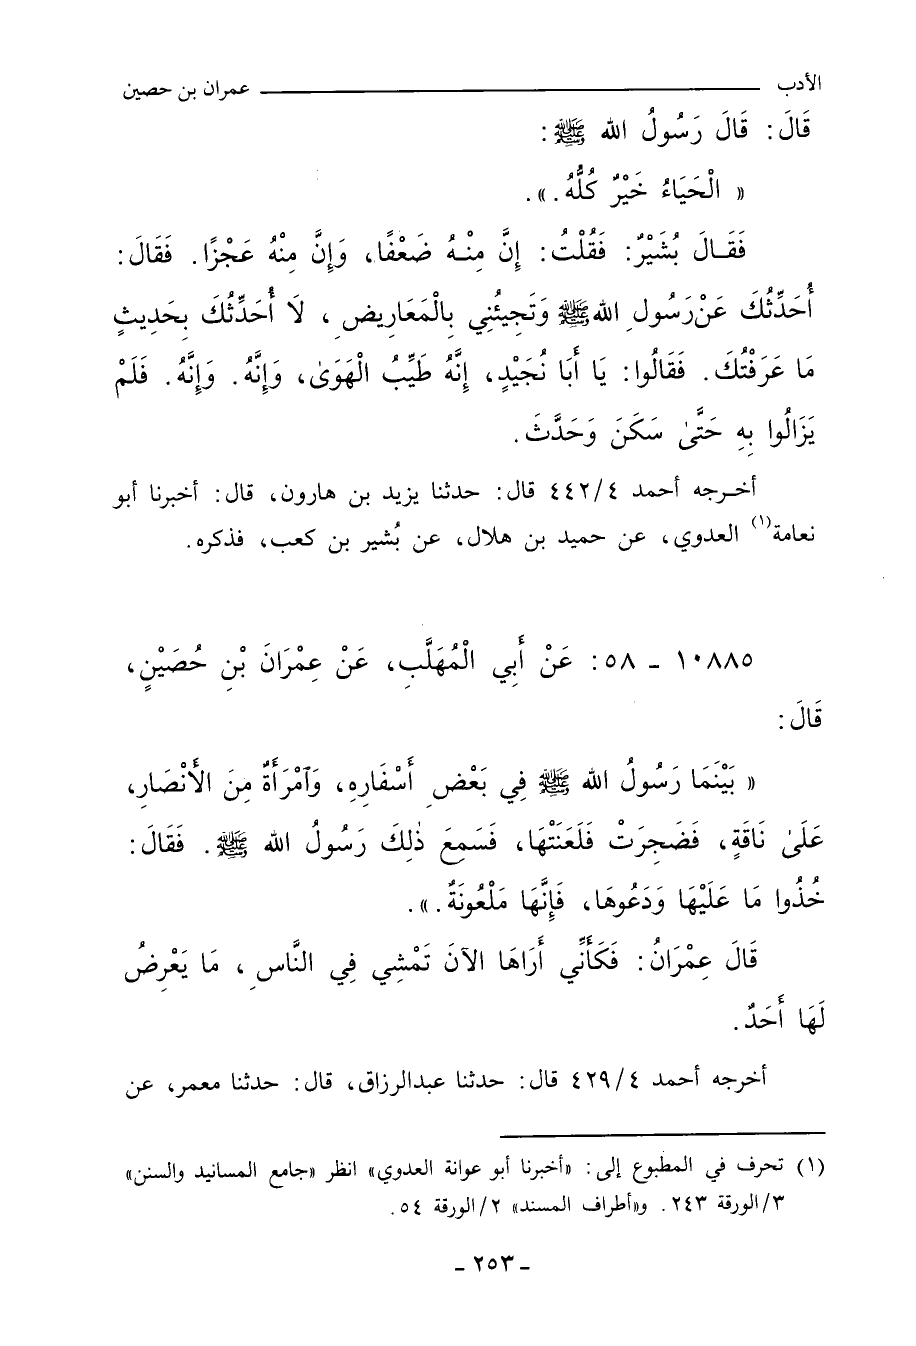 الأدب ــــــــــــــــــــ عمران بن حصين
قَالَ: قَالَ رَسُولُ الله ﷺ:
« الْحَيَاءُ خَيْرٌ كُلُّهُ. ».
فَقَـالَ بُشَيْرٌ: فَقُلْتُ: إِنَّ مِنْـهُ ضَعْفًا، وَإِنَّ مِنْهُ عَجْزًا. فَقَالَ:
أُحَدِّثُكَ عَنْ رَسُولِ الله ﷺ وَتَجِيئُنِي بِالْمَعَارِيضِ، لَا أُحَدِّثُكَ بِحَدِيثٍ
مَا عَرَفْتُكَ. فَقَالُوا: يَا أَبَا نُجَيْدٍ، إِنَّهُ طَيِّبُ الْهَوَىٰ، وَإِنَّهُ. وَإِنَّهُ. فَلَمْ
يَزَالُوا بِهِ حَتَّىٰ سَكَنَ وَحَدَّثَ.
أخـرجه أحمد ٤/٤٤٢ قال: حدثنا يزيد بن هارون، قال: أخبرنا أبو
نعامة(١) العدوي، عن حميد بن هلال، عن بُشير بن كعب، فذكره.
١٠٨٨٥ - ٥٨: عَنْ أَبِي الْمُهَلَّبِ، عَنْ عِمْرَانَ بْنِ حُصَيْنٍ،
قَالَ:
« بَيْنَمَا رَسُولُ الله ﷺ فِي بَعْضِ أَسْفَارِهِ، وَٱمْرَأَةٌ مِنَ الأَنْصَارِ،
عَلَىٰ نَاقَةٍ، فَضَجِرَتْ فَلَعَنَتْهَا، فَسَمِعَ ذٰلِكَ رَسُولُ الله ﷺ. فَقَالَ:
خُذُوا مَا عَلَيْهَا وَدَعُوهَا، فَإِنَّهَا مَلْعُونَةٌ. ».
قَالَ عِمْرَانُ: فَكَأَنِّي أَرَاهَا الآنَ تَمْشِي فِي النَّاسِ، مَا يَعْرِضُ
لَهَا أَحَدٌ.
أخرجه أحمد ٤/٤٢٩ قال: حدثنا عبدالرزاق، قال: حدثنا معمر، عن
(١) تحرف في المطبوع إلى: «أخبرنا أبو عوانة العدوي» انظر «جامع المسانيد والسنن»
٣/الورقة ٢٤٣. و«أطراف المسند» ٢/الورقة ٥٤.
- ٢٥٣ -